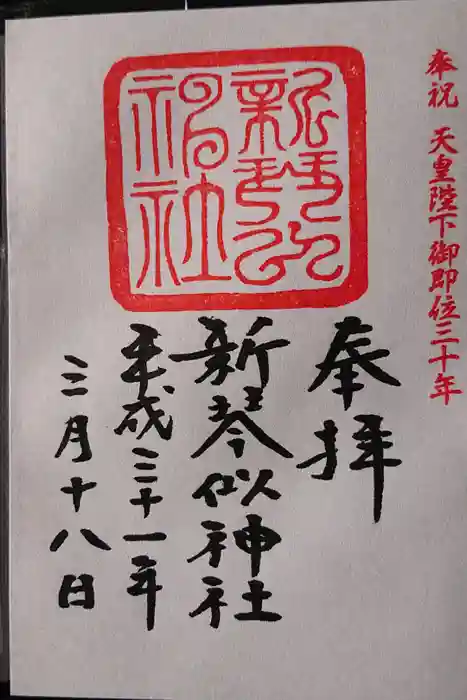 奉祝 天皇陛下御即位三十年
奉拝
新琴似神社
平成三十一年
三月十八日
新琴似
神社